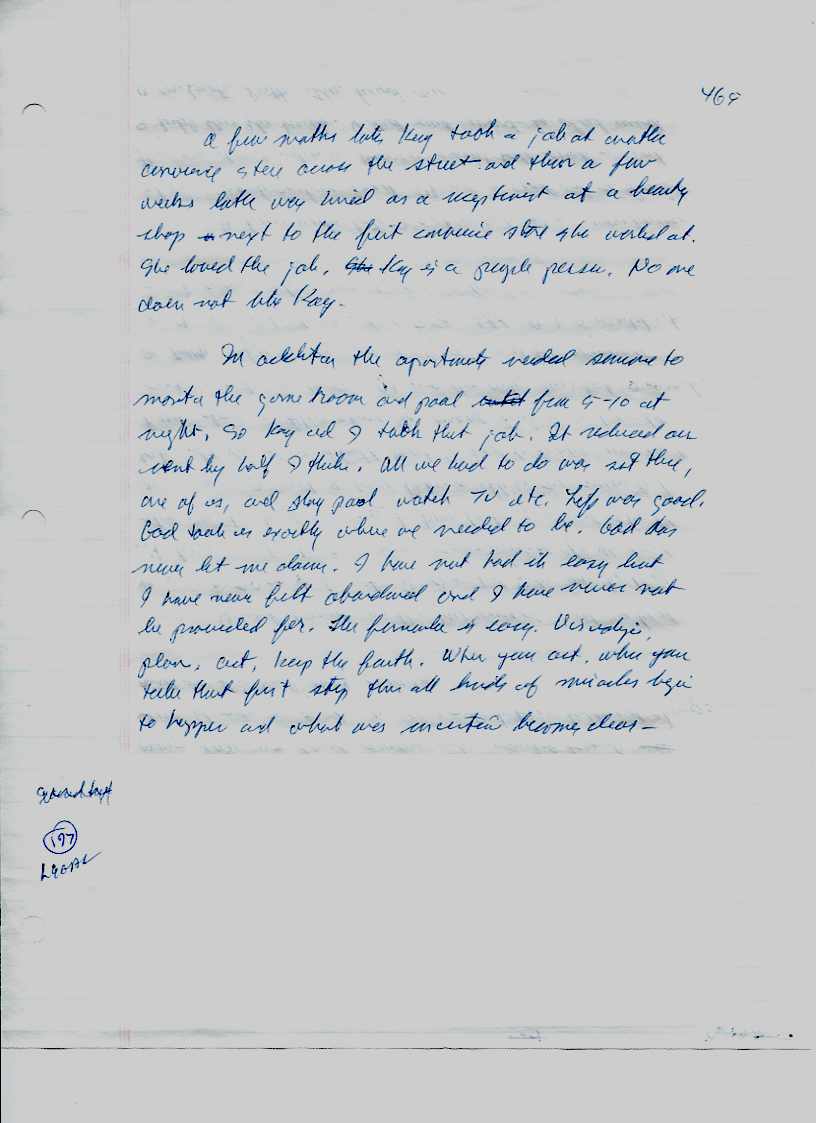 469
A few months later Kay took a job at another
convience store across the street and then a few
weeks later was hired as a receptionist at a beauty
shop next to the first convience store she worked at.
She loved the job. She Kay is a people person. No one
does not like Kay.
In addition the apartments needed someone to
monitor the game room and pool from 5-10 at
night. So Kay and I took that job. It reduced our
rent by half I think. All we had to do was sit there,
one of us, and play pool watch TV etc. Life was good.
God took us exactly where we needed to be. God has
never let me down. I have not had it easy but
I have never felt abandoned and I have never not
be provided for. The formula is easy. Visualize,
plan, act, keep the faith. When you act, when you
take that first step then all kinds of miracles begin
to happen and what was uncertain becomes clear-
197
LEGAL